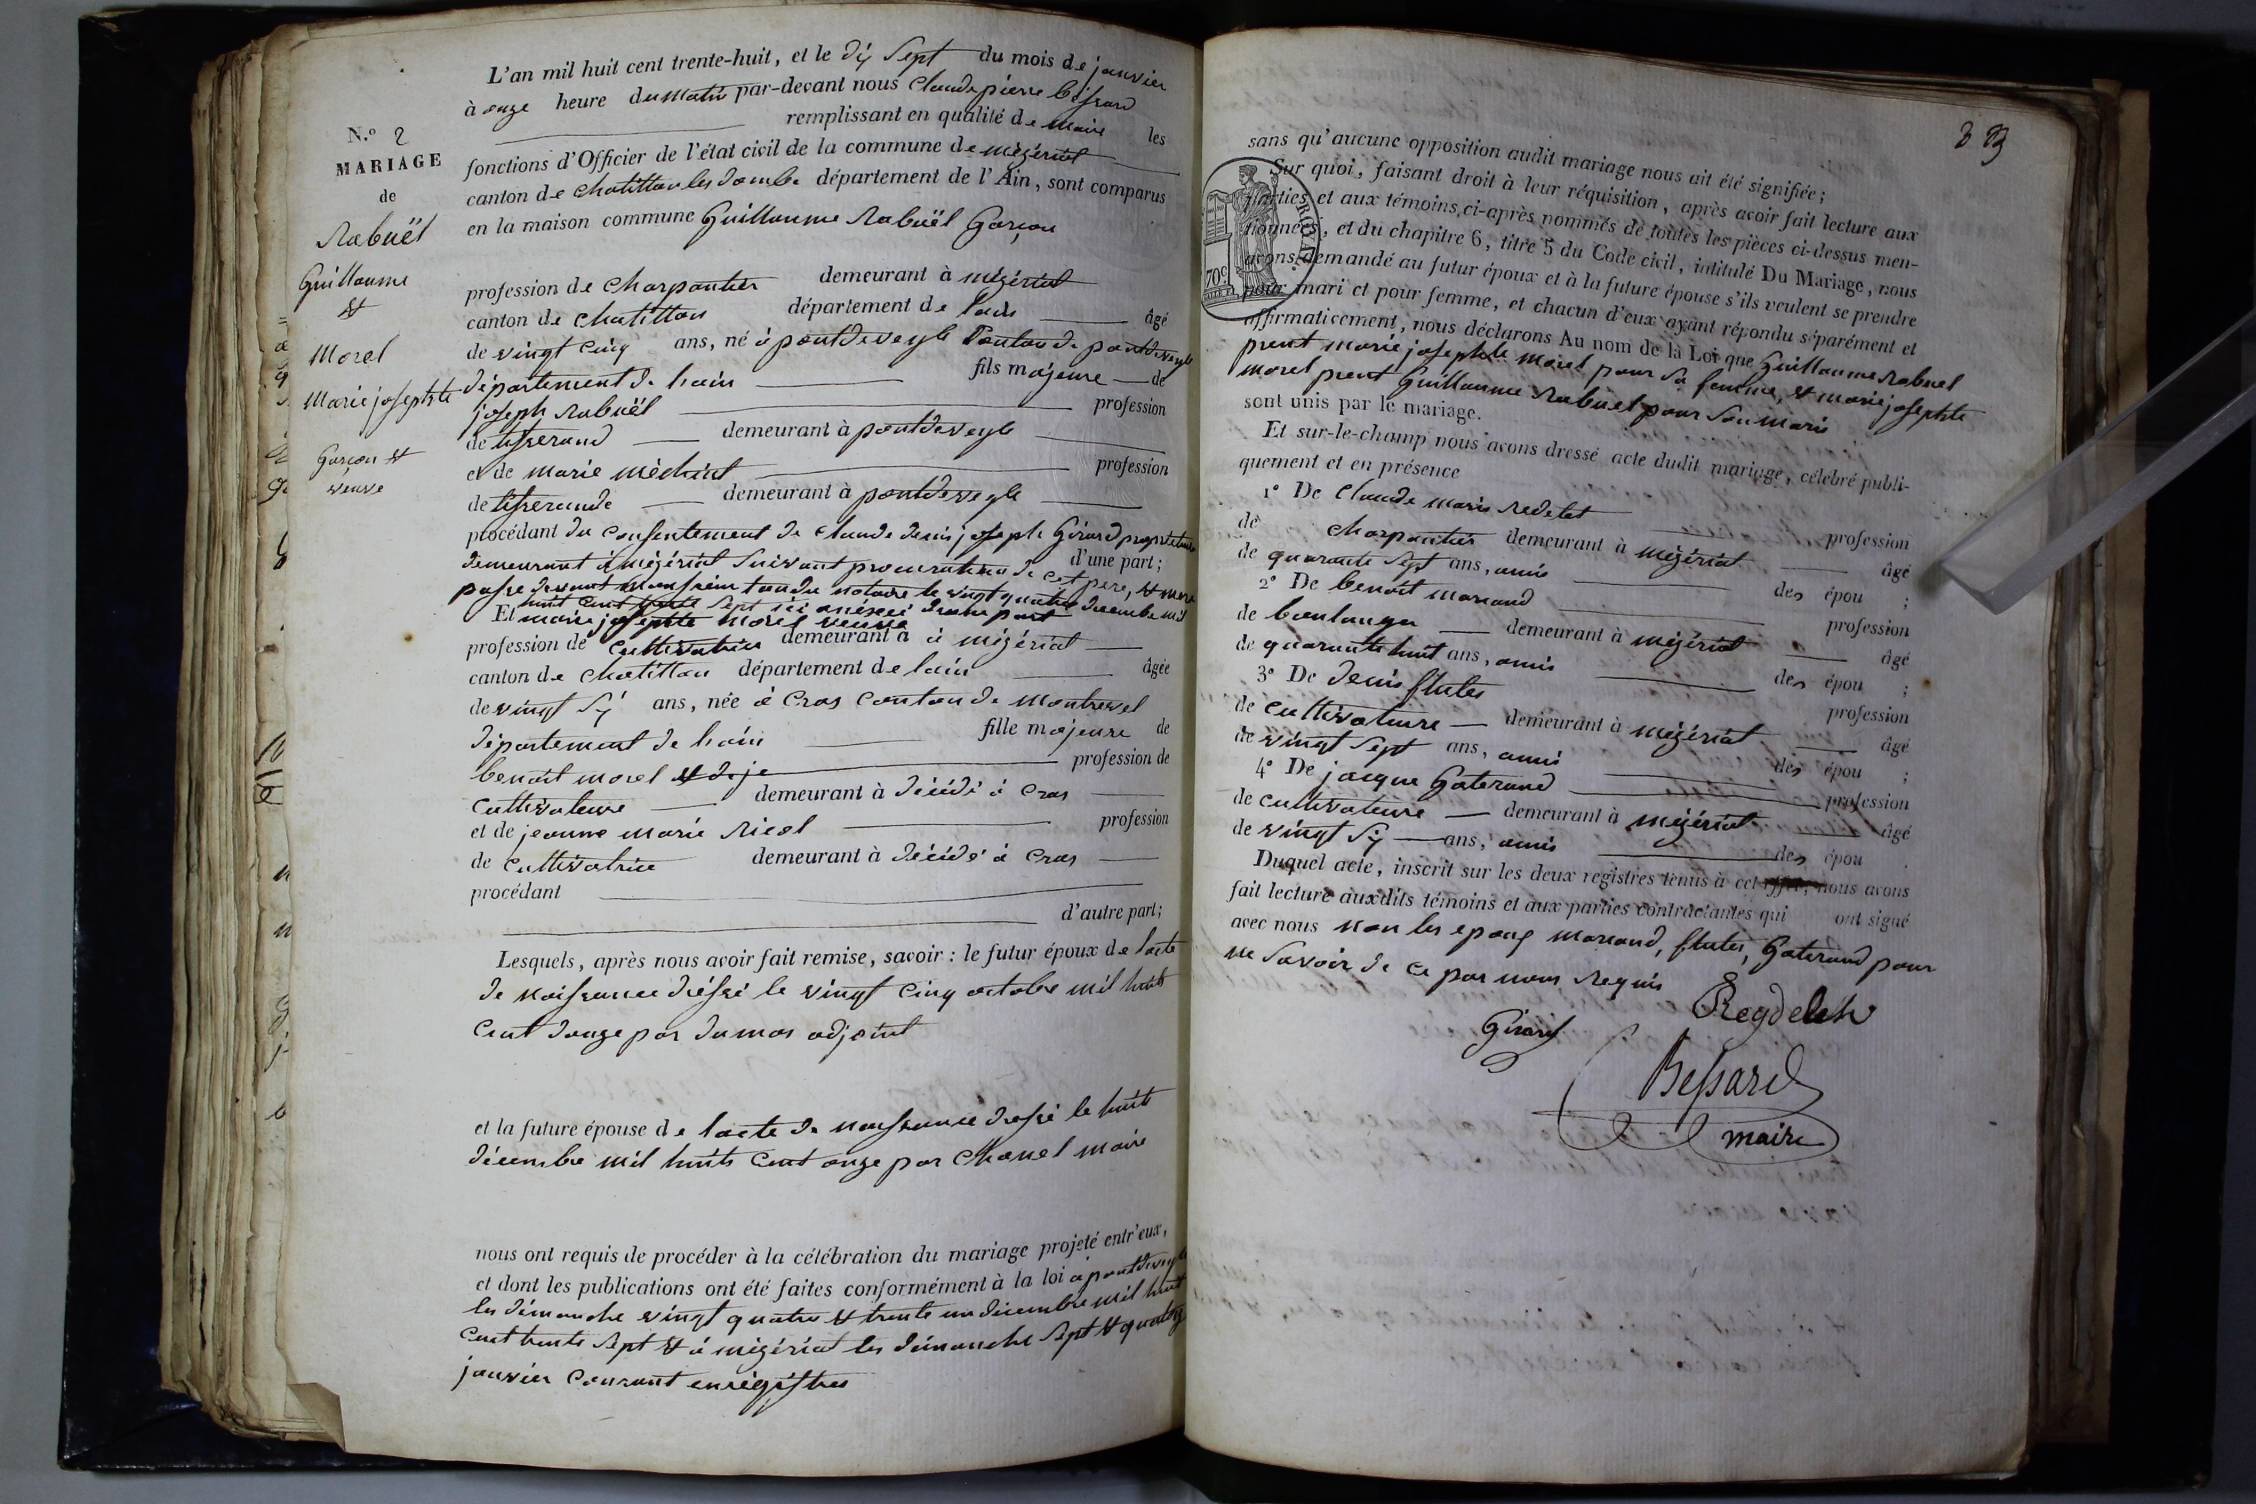 N.º 2
MARIAGE
de
Rabuël
Guillaume
et
Morel
Marie josephte
Garçon et
veuve
L'an mil huit cent trente-huit, et le dix Sept du mois de janvier
à onze heure du matin par-devant nous Claude pierre Bessard
remplissant en qualité de maire les
fonctions d'Officier de l'état civil de la commune de mézériat
canton de chatillon les dombe département de l'Ain, sont comparus
en la maison commune Guillaume Rabuël Garçon
profession de charpentier demeurant à mézériat
canton de chatillon département de lain âgé
de vingt cinq ans, né à pontdeveyle Canton de pontdeveyle
département de lain fils majeure de
joseph Rabuël profession
de tisserand demeurant à pontdeveyle
et de marie méchint profession
de tisserande demeurant à pontdeveyle
procédant du consentement de claude denis joseph Girard propriétaire
demeurant à mézériat Suivant procuration de cet pere, et mere d'une part;
passe devant notaire le vingt quatre decembre mil
huit cent trente Sept ici anéxéé d'autre part
Et marie josephte morel veuve
profession de cultivatrice demeurant à à mézériat
canton de chatillon département de lain âgée
de vingt Six ans, née à Cras Canton de Montrevel
département de lain fille majeure de
benoit morel et de je profession de
cultivateure demeurant à décédé à Cras
et de jeanne marie Ricol profession
de cultivatrice demeurant à décédé à Cras
procédant
d'autre part;
Lesquels, après nous avoir fait remise, savoir : le futur époux de lacte
de naissance dréssé le vingt cinq octobre mil huit
cent douze par dumas adjoint
et la future épouse de lacte de naissance dressé le huit
décembre mil huit cent onze par Chanel maire
nous ont requis de procéder à la célébration du mariage projeté entr'eux,
et dont les publications ont été faites conformément à la loi à pontdeveyle
les dimanche vingt quatre et trente un décembre mil huit
cent trente Sept et à mézériat les dimanche Sept et quatorze
janvier courant enrégistres
sans qu'aucune opposition audit mariage nous ait été signifiée;
Sur quoi, faisant droit à leur réquisition, après avoir fait lecture aux
parties et aux témoins ci-après nommés de toutes les pièces ci-dessus men-
tionnées, et du chapitre 6, titre 5 du Code civil, intitulé Du Mariage, nous
avons demandé au futur époux et à la future épouse s'ils veulent se prendre
pour mari et pour femme, et chacun d'eux ayant répondu séparément et
affirmativement, nous déclarons Au nom de la Loi que Guillaume Rabuel
prent marie josephte morel pour sa femme, et marie josephte
morel prent Guillaume Rabuel pour Son mari
sont unis par le mariage.
Et sur-le-champ nous avons dressé acte dudit mariage, célébré publi-
quement et en présence
1º De Claude marie Redelet profession
de charpentier demeurant à mézériat âgé
de quarante Sept ans, amis des épou ;
2º De benoit marand profession
de boulanger demeurant à mézériat âgé
de quarante huit ans, amis des épou ;
3º De denis flutes profession
de cultivateure demeurant à mézériat âgé
de vingt Sept ans, amis des épou ;
4º De jacque Gaterand profession
de cultivateure demeurant à mézériat âgé
de vingt Six ans, amis des épou .
Duquel acte, inscrit sur les deux registres tenus à cet effet, nous avons
fait lecture auxdits témoins et aux parties contractantes qui ont signé
avec nous non les epoux marand, flutes, Gaterand pour
ne Savoir de ce par nous Requis
Girard
Bessard
maire
70c